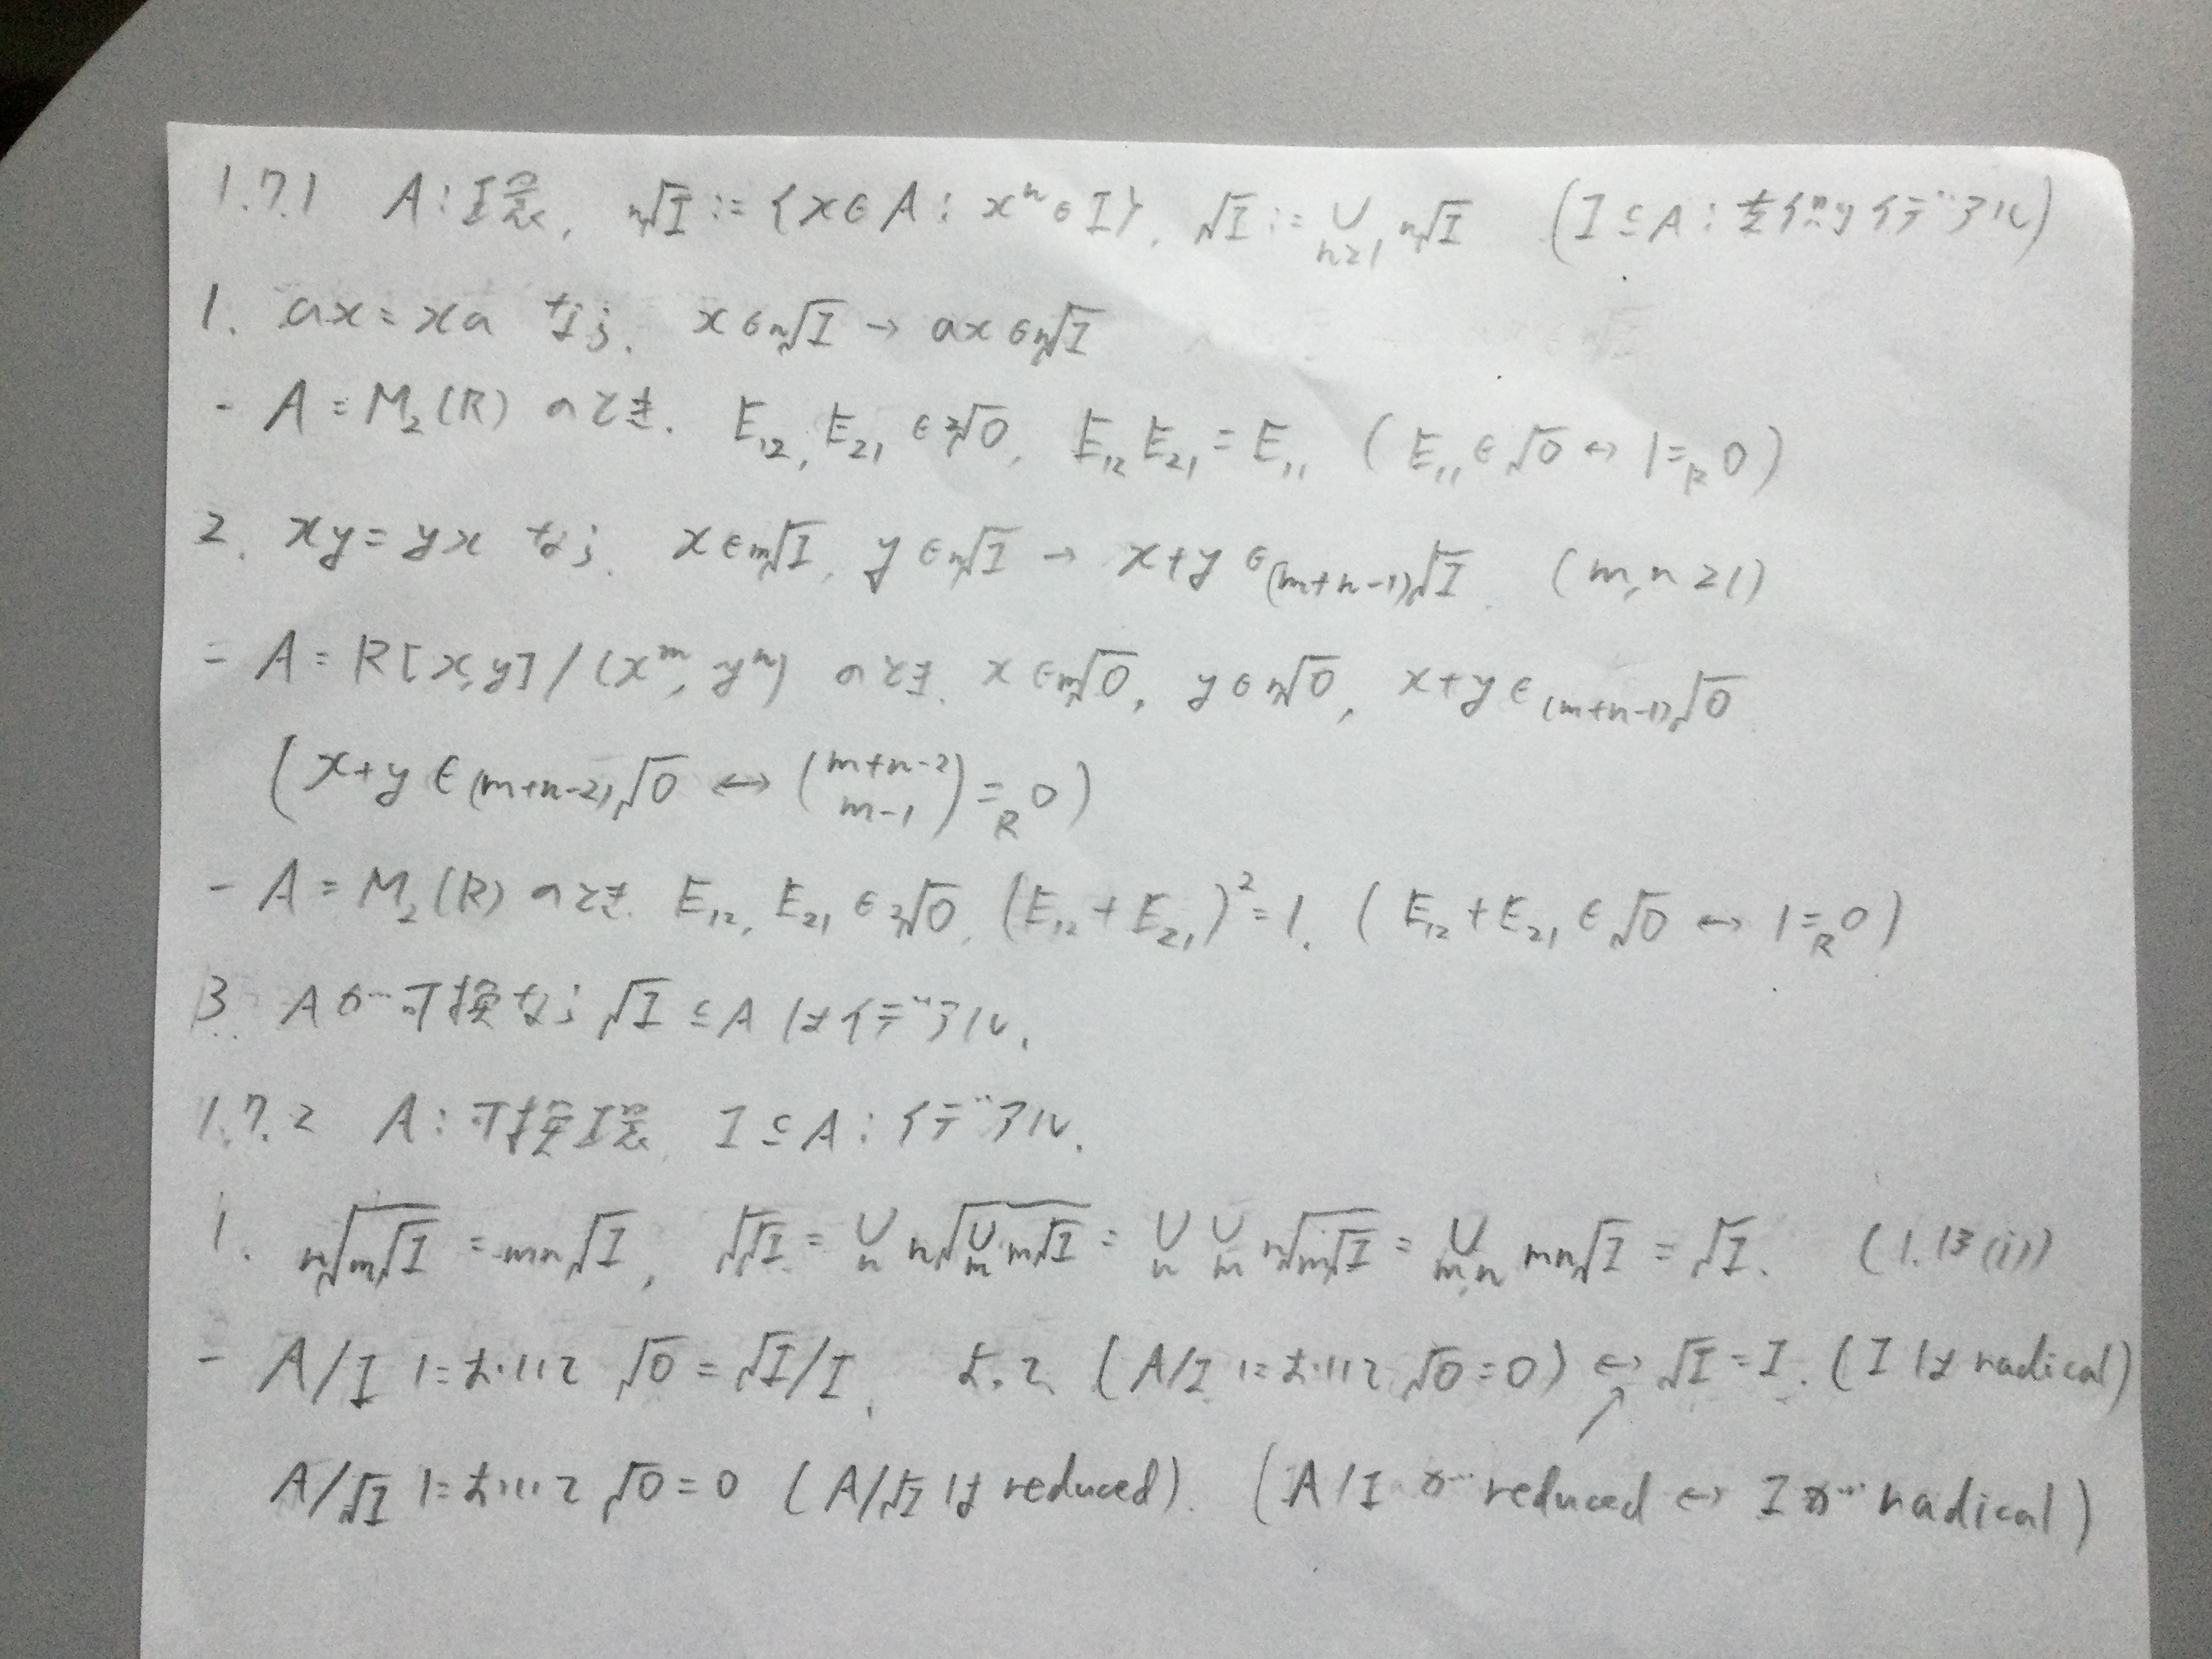 1.7.1 A:環, ⁿ√I := {x∈A : xⁿ∈I}, √I := ∪_{n≥1} ⁿ√I (I⊆A : 左イデアル)
1. ax=xa なら, x∈ⁿ√I → ax∈ⁿ√I
- A=M₂(R) のとき. E₁₂, E₂₁ ∈ ²√0, E₁₂E₂₁=E₁₁ (E₁₁∈√0 ↔ 1=_R 0)
2. xy=yx なら, x∈ᵐ√I, y∈ⁿ√I → x+y ∈ ⁽ᵐ⁺ⁿ⁻¹⁾√I. (m,n≥1)
- A=R[x,y]/(xᵐ, yⁿ) のとき. x∈ᵐ√0, y∈ⁿ√0, x+y∈ ⁽ᵐ⁺ⁿ⁻¹⁾√0
(x+y ∈ ⁽ᵐ⁺ⁿ⁻²⁾√0 ↔ (m+n-2 m-1) =_R 0)
- A=M₂(R) のとき. E₁₂, E₂₁ ∈ ²√0, (E₁₂+E₂₁)²=1. (E₁₂+E₂₁∈√0 ↔ 1=_R 0)
3. A が可換なら √I⊆A はイデアル.
1.7.2 A:可換環, I⊆A:イデアル.
1. ⁿ√(ᵐ√I) = ᵐⁿ√I, √√I = ∪_n ⁿ√(∪_m ᵐ√I) = ∪_n ∪_m ⁿ√(ᵐ√I) = ∪_{m,n} ᵐⁿ√I = √I. (1.13(i))
- A/I において √0=√I/I, よって (A/I において √0=0) ↔ √I=I. (I は radical)
A/√I において √0=0 (A/√I は reduced). (A/I が reduced ↔ I が radical)